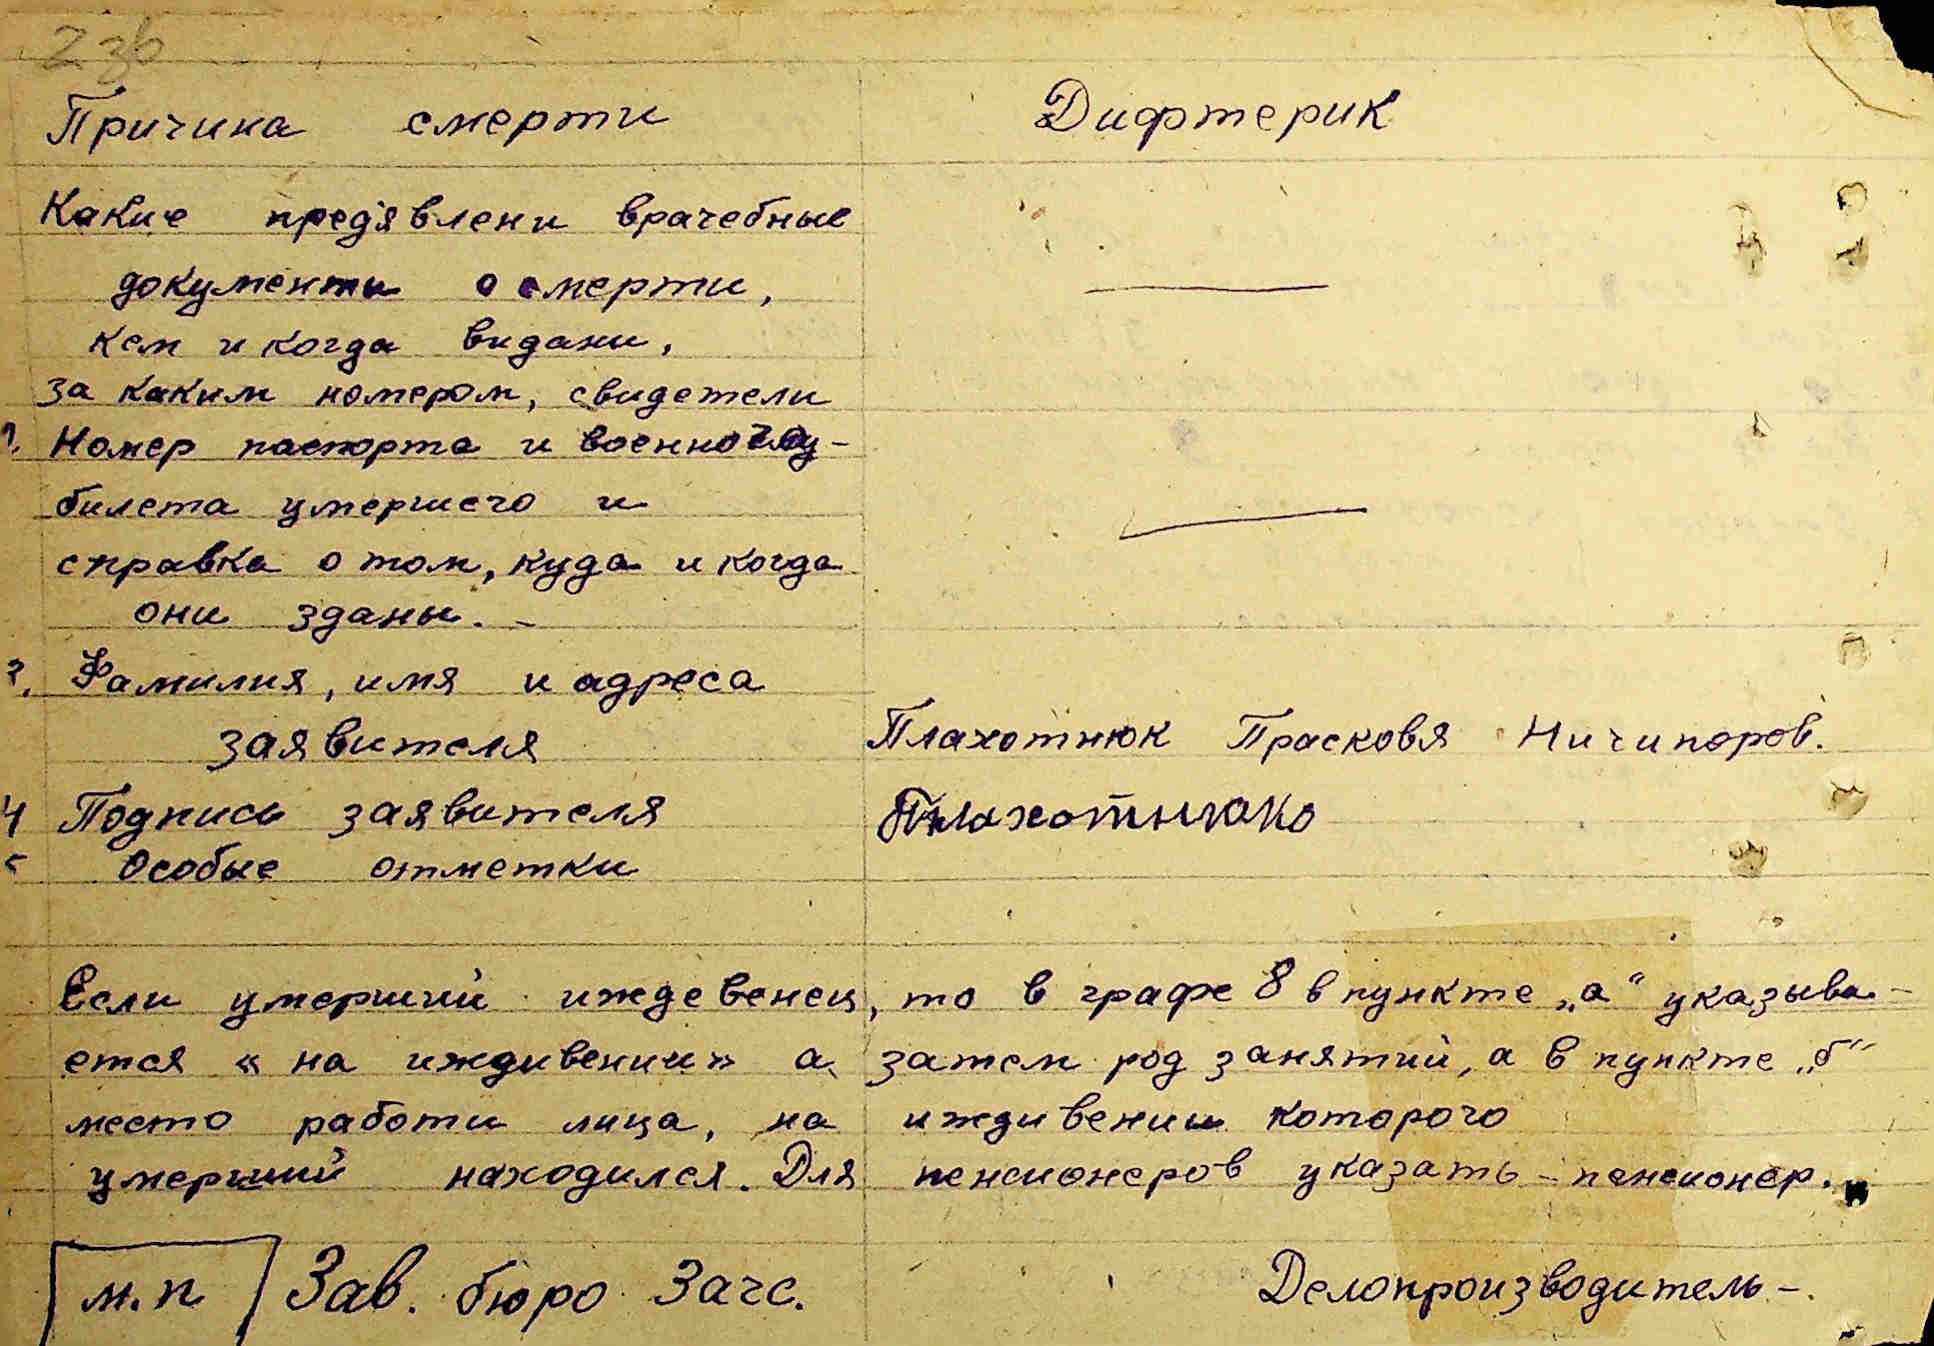 23b
Причина смерти Дифтерик
Какие предявлени врачебные
документи о смерти,
кем и когда видани,
за каким номером, свидетели
Номер паспорта и военного-
билета умершего и
справка о том, куда и когда
они зданы. -
3. Фамилия, имя и адреса
заявителя Плахотнюк Прасковя Ничипоров.
4 Подпись заявителя Плахотнюко
5 Особые отметки
Если умерший иждевенец, то в графе 8 в пункте „а“ указыва-
ется « на иждивении» а затем род занятий, а в пункте „б“
место работи лица, на иждивении которого
умерший находился. Для пенсионеров указать - пенсионер.
м.п Зав. бюро Загс. Делопроизводитель -.